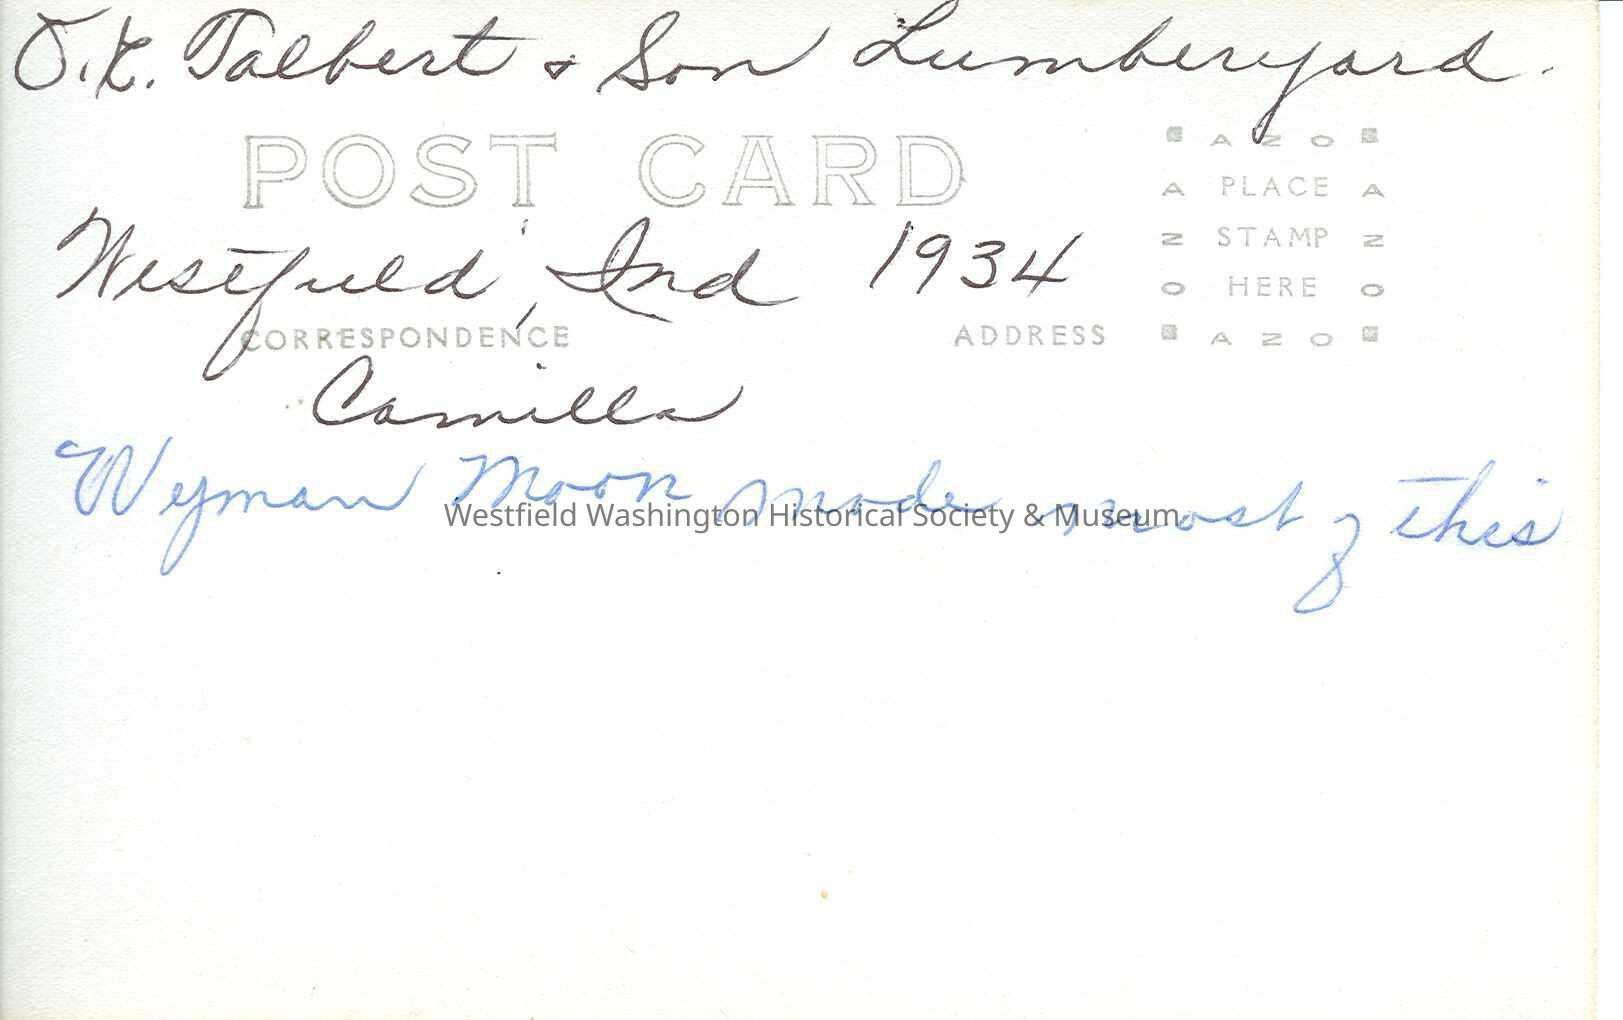 O.K. Talbert & Son Lumberyard.
POST CARD
AZO
A PLACE A
Z STAMP Z
O HERE O
AZO
Westfield, Ind 1934
CORRESPONDENCE
ADDRESS
Camilla
Wyman Moon made most of this
Westfield Washington Historical Society & Museum